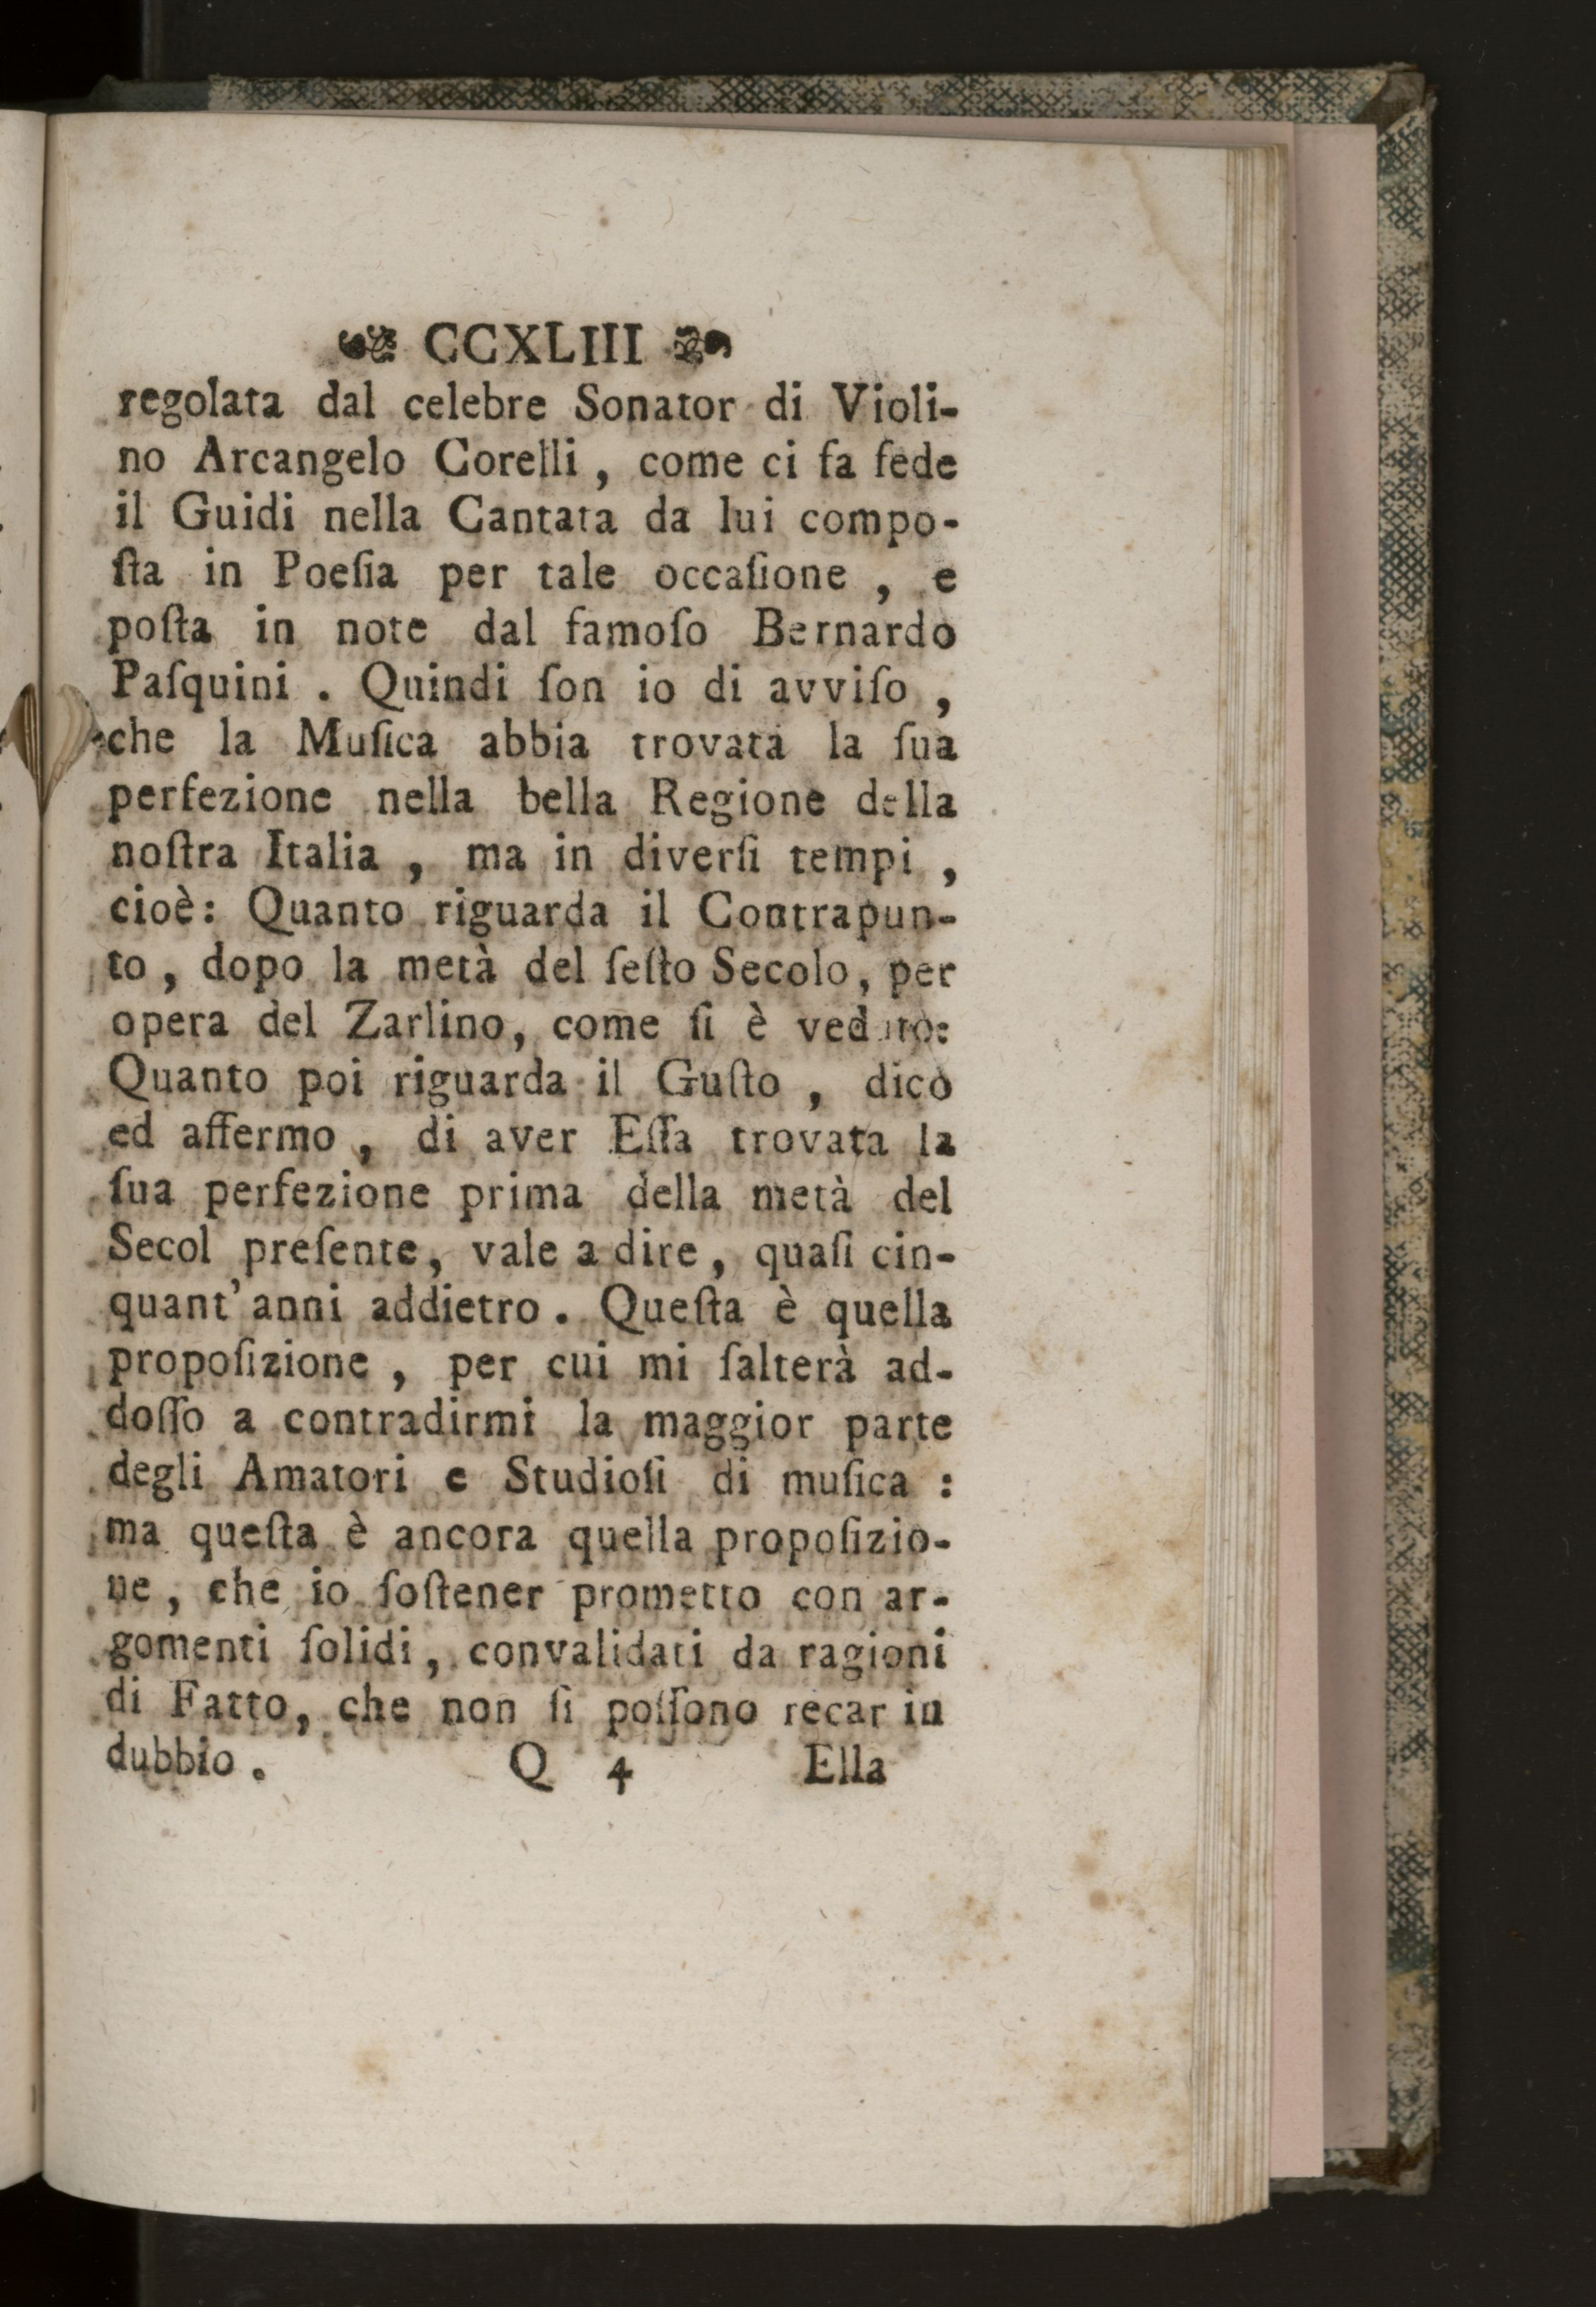 CCXLIII
regolata dal celebre Sonator di Violi-
no Arcangelo Corelli, come ci fa fede
il Guidi nella Cantata da lui compo-
ſta in Poeſia per tale occaſione, e
poſta in note dal famoſo Bernardo
Paſquini. Quindi ſon io di avviſo,
che la Muſica abbia trovata la ſua
perfezione nella bella Regione della
noſtra Italia, ma in diverſi tempi,
cioè: Quanto riguarda il Contrapun-
to, dopo la metà del ſeſto Secolo, per
opera del Zarlino, come ſi è veduto:
Quanto poi riguarda il Guſto, dico
ed affermo, di aver Eſſa trovata la
ſua perfezione prima della metà del
Secol preſente, vale a dire, quaſi cin-
quant' anni addietro. Queſta è quella
propoſizione, per cui mi ſalterà ad-
doſſo a contradirmi la maggior parte
degli Amatori e Studioſi di muſica:
ma queſta è ancora quella propoſizio-
ne, che io ſoſtener prometto con ar-
gomenti ſolidi, convalidati da ragioni
di Fatto, che non ſi poſſono recar in
dubbio. Q 4 Ella